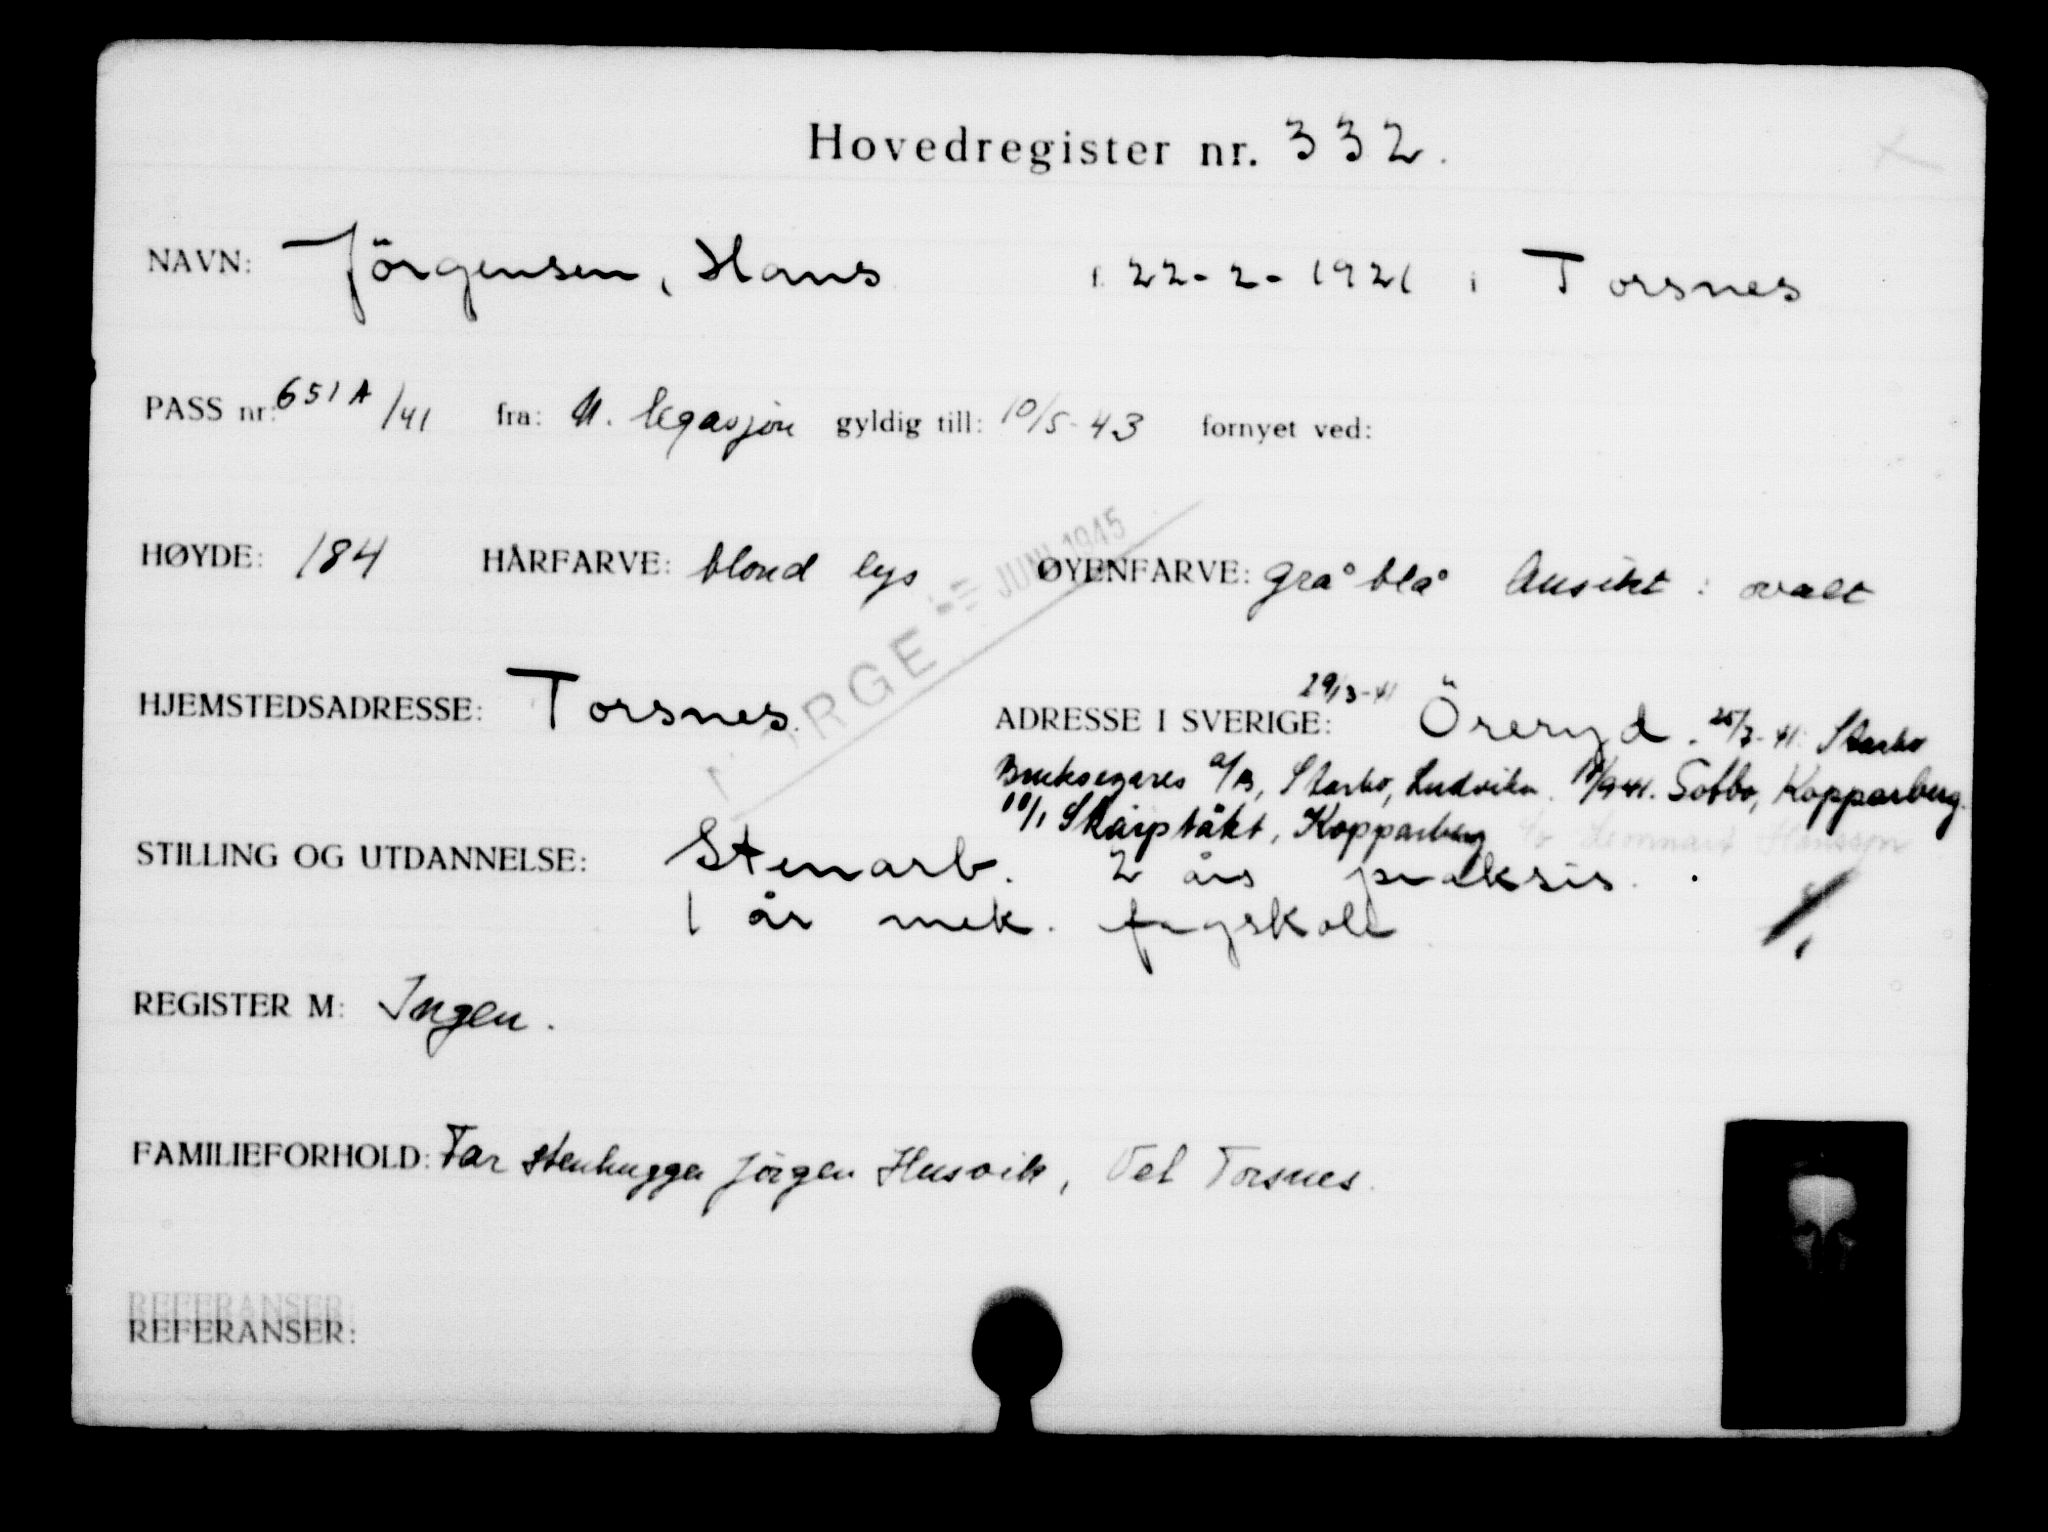 Hovedregister nr. 332.
NAVN: Jörgensen, Hans f. 22-2-1921 i Torsnes
PASS nr: 651A/41 fra: N. legasjon gyldig till: 10/5-43 fornyet ved:
HØYDE: 184 HÅRFARVE: blond lys ØYENFARVE: grå blå Ansikt: ovalt
NORGE JUNI 1945
HJEMSTEDSADRESSE: Torsnes. ADRESSE I SVERIGE: 29/3-41 Öreryd. 25/7-41: Starbo
Bruksegares a/B, Starbo, Ludvika. Kopparberg.
10/1 Skärptäkt, Kopparberg c/o Lennart Hansson
STILLING OG UTDANNELSE: Stenarb. 2 års praksis.
1 år mek. fagskole
REGISTER M: Ingen.
FAMILIEFORHOLD: Far stenhugger Jörgen Husvik, Vel Torsnes.
REFERANSER:
REFERANSER: